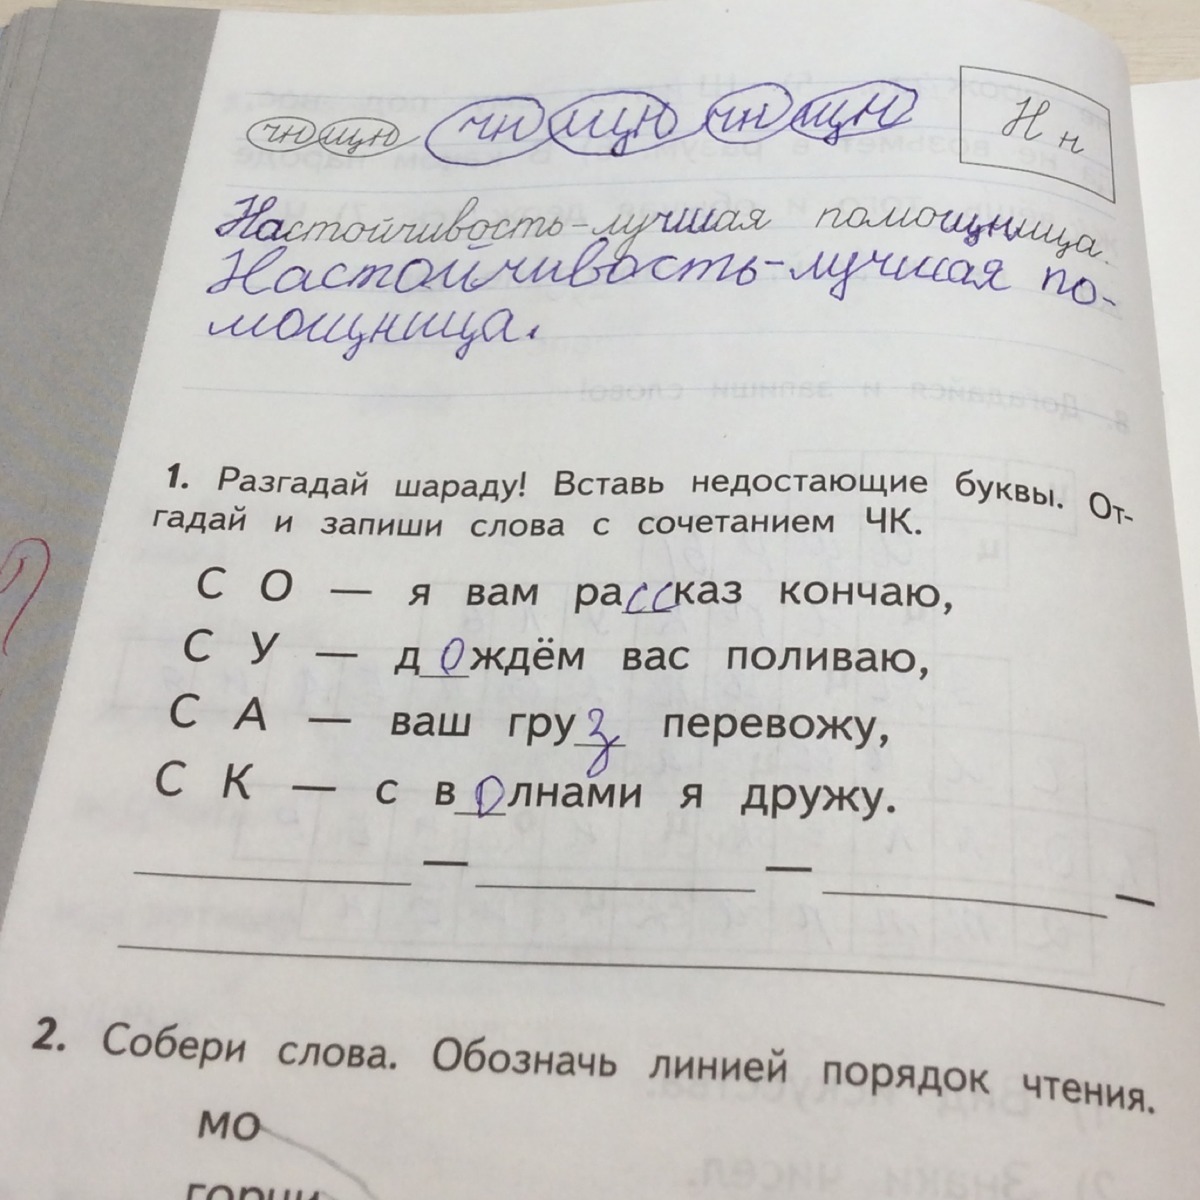 чн щн чн щн чн щн
Н н
Настойчивость-лучшая помощница.
Настойчивость-лучшая по-
мощница.
1. Разгадай шараду! Вставь недостающие буквы. От-
гадай и запиши слова с сочетанием ЧК.
С О — я вам рассказ кончаю,
С У — дождём вас поливаю,
С А — ваш груз перевожу,
С К — с волнами я дружу.
2. Собери слова. Обозначь линией порядок чтения.
мо
горчи